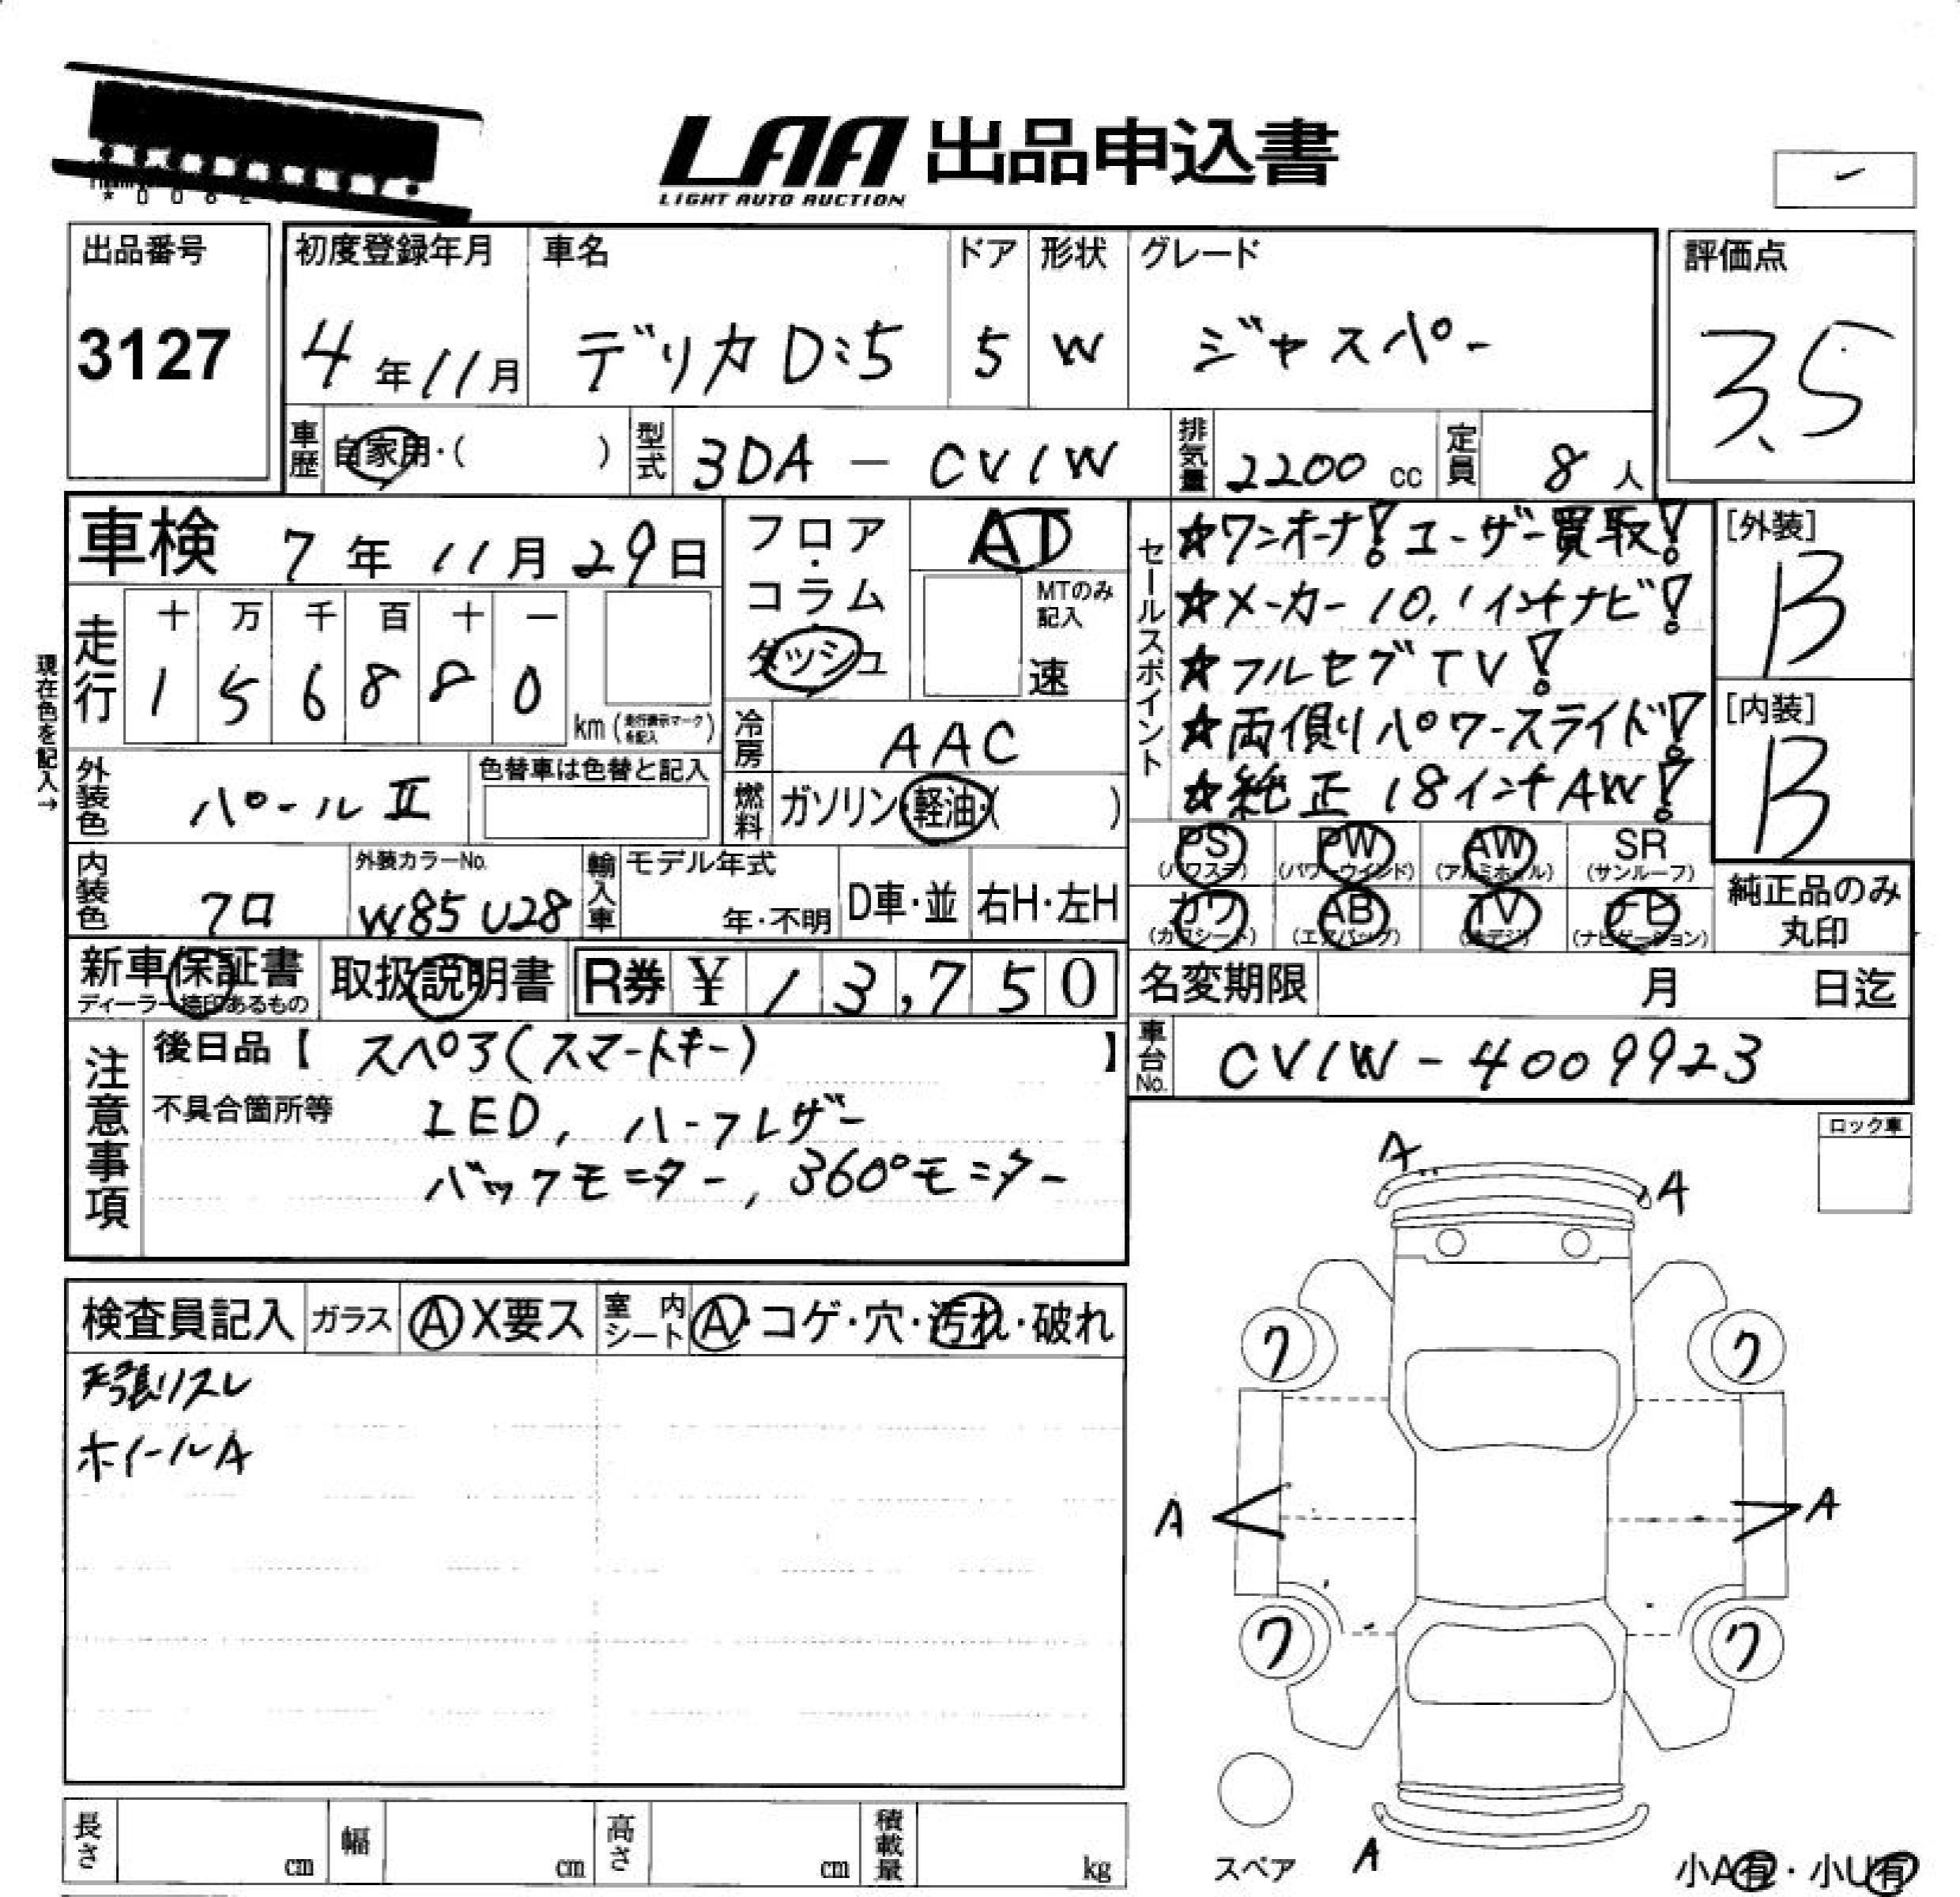 LAA 出品申込書
LIGHT AUTO AUCTION
出品番号
3127
初度登録年月
4年11月
車名
デリカD:5
ドア
5
形状
W
グレード
ジャスパー
評価点
3.5
車歴 自家用・( )
型式 3DA - CV1W
排気量 2200 cc
定員 8人
車検 7年11月29日
フロア・コラム ダッシュ
AT
MTのみ記入
速
現在色を記入→
走行 十 万 千 百 十 一
1 5 6 8 8 0
km (走行表示マークを記入)
冷房 AAC
外装色 パールⅡ
色替車は色替と記入
燃料 ガソリン・軽油・( )
内装色 クロ
外装カラーNo.
W85 U28
輸入車 モデル年式
年・不明
D車・並
右H・左H
セールスポイント
☆ワンオーナ! ユーザー買取!
☆メーカー10.1インチナビ!
☆フルセグTV!
☆両側パワースライド!
☆純正18インチAW!
[外装]
B
[内装]
B
PS (パワステ) PW (パワーウインド) AW (アルミホイル) SR (サンルーフ)
カワ (カワシート) AB (エアバッグ) TV (地デジ) ナビ (ナビゲーション)
純正品のみ丸印
新車保証書
ディーラー捺印あるもの
取扱説明書
R券 ¥ 13,750
名変期限 月 日迄
車台No. CV1W-4009923
注意事項
後日品【 スペア(スマートキー) 】
不具合箇所等
LED, ハーフレザー
バックモニター, 360°モニター
ロック車
検査員記入 ガラス A X要ス 室内シート A・コゲ・穴・汚れ・破れ
天張リスレ
ホイールA
A
A
ワ ワ
A A
ワ ワ
スペア
A
小A有・小U有
長さ cm 幅 cm 高さ cm 積載量 kg